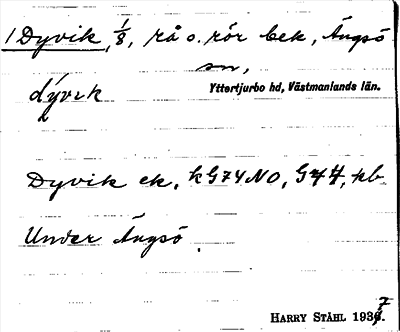 1 Dyvik, 1/8, rå o. rör bek, Ängsö
sn,
Yttertjurbo hd, Västmanlands län.
dývık
Dyvik ek, kG74NO, G44, pb
Under Ängsö.
HARRY STÅHL 1937.